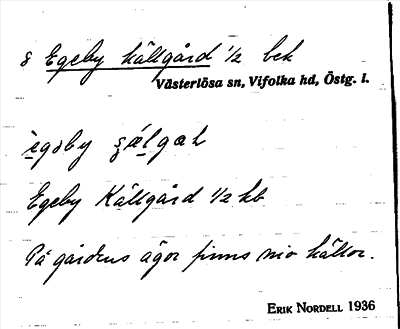 8 Egeby Källgård 1/2 bek
Västerlösa sn, Vifolka hd, Östg. l.
Egeby Källgård 1/2 hb
På gårdens ägor finns nio källor.
ERIK NORDELL 1936